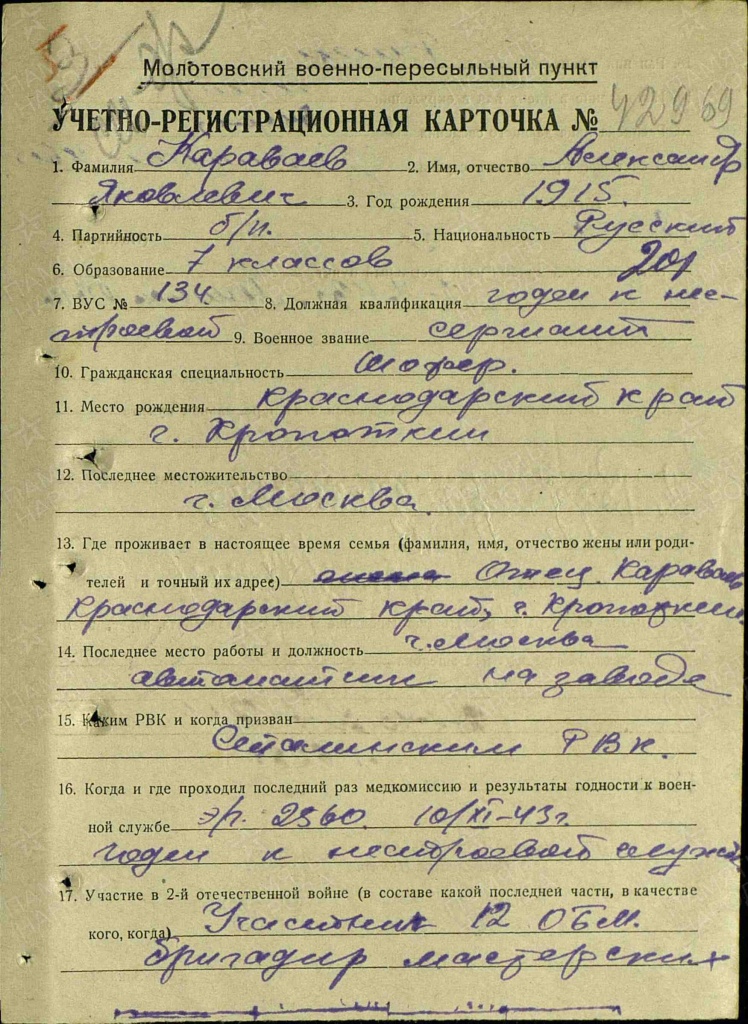 Молотовский военно-пересыльный пункт
УЧЕТНО-РЕГИСТРАЦИОННАЯ КАРТОЧКА № 42969
1. Фамилия Караваев 2. Имя, отчество Александр
Яковлевич 3. Год рождения 1915.
4. Партийность б/п. 5. Национальность Русский
6. Образование 7 классов
7. ВУС № 134 8. Должная квалификация годен к нес-
троевой 9. Военное звание сержант
10. Гражданская специальность шофер.
11. Место рождения Краснодарский край
г. Кропоткин
12. Последнее местожительство
г. Москва.
13. Где проживает в настоящее время семья (фамилия, имя, отчество жены или роди-
телей и точный их адрес) Отец Караваев
Краснодарский край, г. Кропоткин.
14. Последнее место работы и должность г. Москва
на заводе
15. Каким РВК и когда призван
Сталинским РВК.
16. Когда и где проходил последний раз медкомиссию и результаты годности к воен-
ной службе э/г. 2560. 10/XI-43 г.
годен к нестроевой служб
17. Участие в 2-й отечественной войне (в составе какой последней части, в качестве
кого, когда) Участник 12 ОБМ.
бригадир мастерских